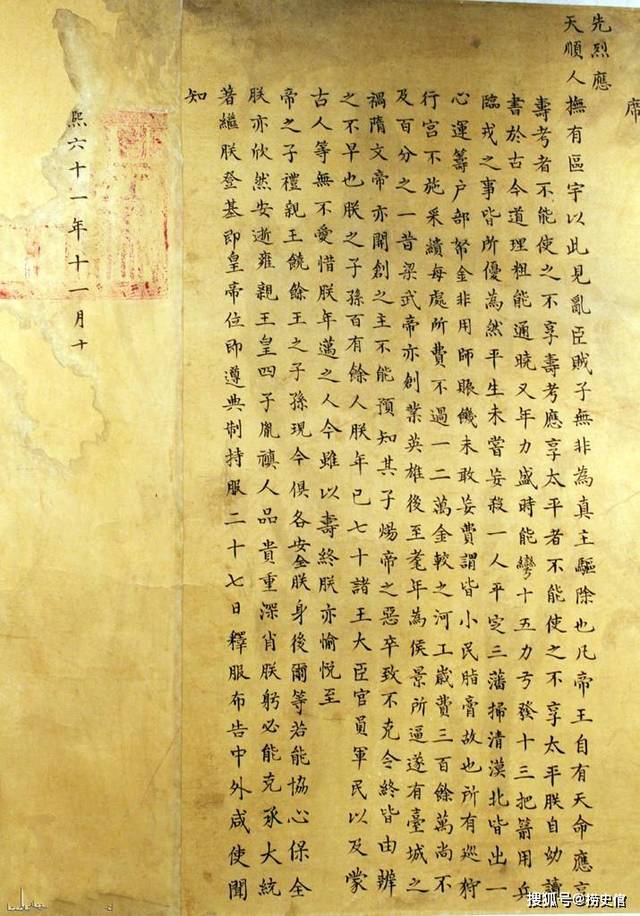 席
先烈應
天順人撫有區宇以此見亂臣賊子無非為真主驅除也凡帝王自有天命應享
壽考者不能使之不享壽考應享太平者不能使之不享太平朕自幼讀
書於古今道理粗能通曉又年力盛時能彎十五力弓發十三把箭用兵
臨戎之事皆所優為然平生未嘗妄殺一人平定三藩掃清漠北皆出一
心運籌户部帑金非用師賑饑未敢妄費謂皆小民脂膏故也所有巡狩
行宮不施采繢每處所費不過一二萬金較之河工歲費三百餘萬尚不
及百分之一昔梁武帝亦創業英雄後至耄年為侯景所逼遂有臺城之
禍隋文帝亦開創之主不能預知其子煬帝之惡卒致不克令終皆由辨
之不早也朕之子孫百有餘人朕年已七十諸王大臣官員軍民以及蒙
古人等無不愛惜朕年邁之人今雖以壽終朕亦愉悅至
帝之子禮親王饒餘王之子孫現今俱各安全朕身後爾等若能協心保全
朕亦欣然安逝雍親王皇四子胤禛人品貴重深肖朕躬必能克承大統
著繼朕登基即皇帝位即遵典制持服二十七日釋服布告中外咸使聞
知
熙六十一年十一月十
搜狐号@捞史馆